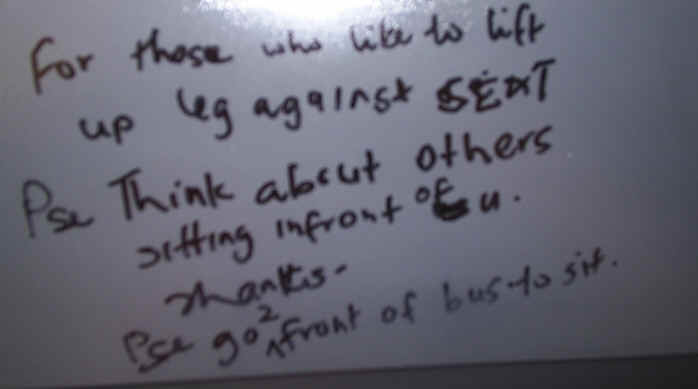 For those who like to lift
up leg against SEAT
Pse Think about others
sitting infront of u.
Thanks.
Pse go 2 front of bus to sit.